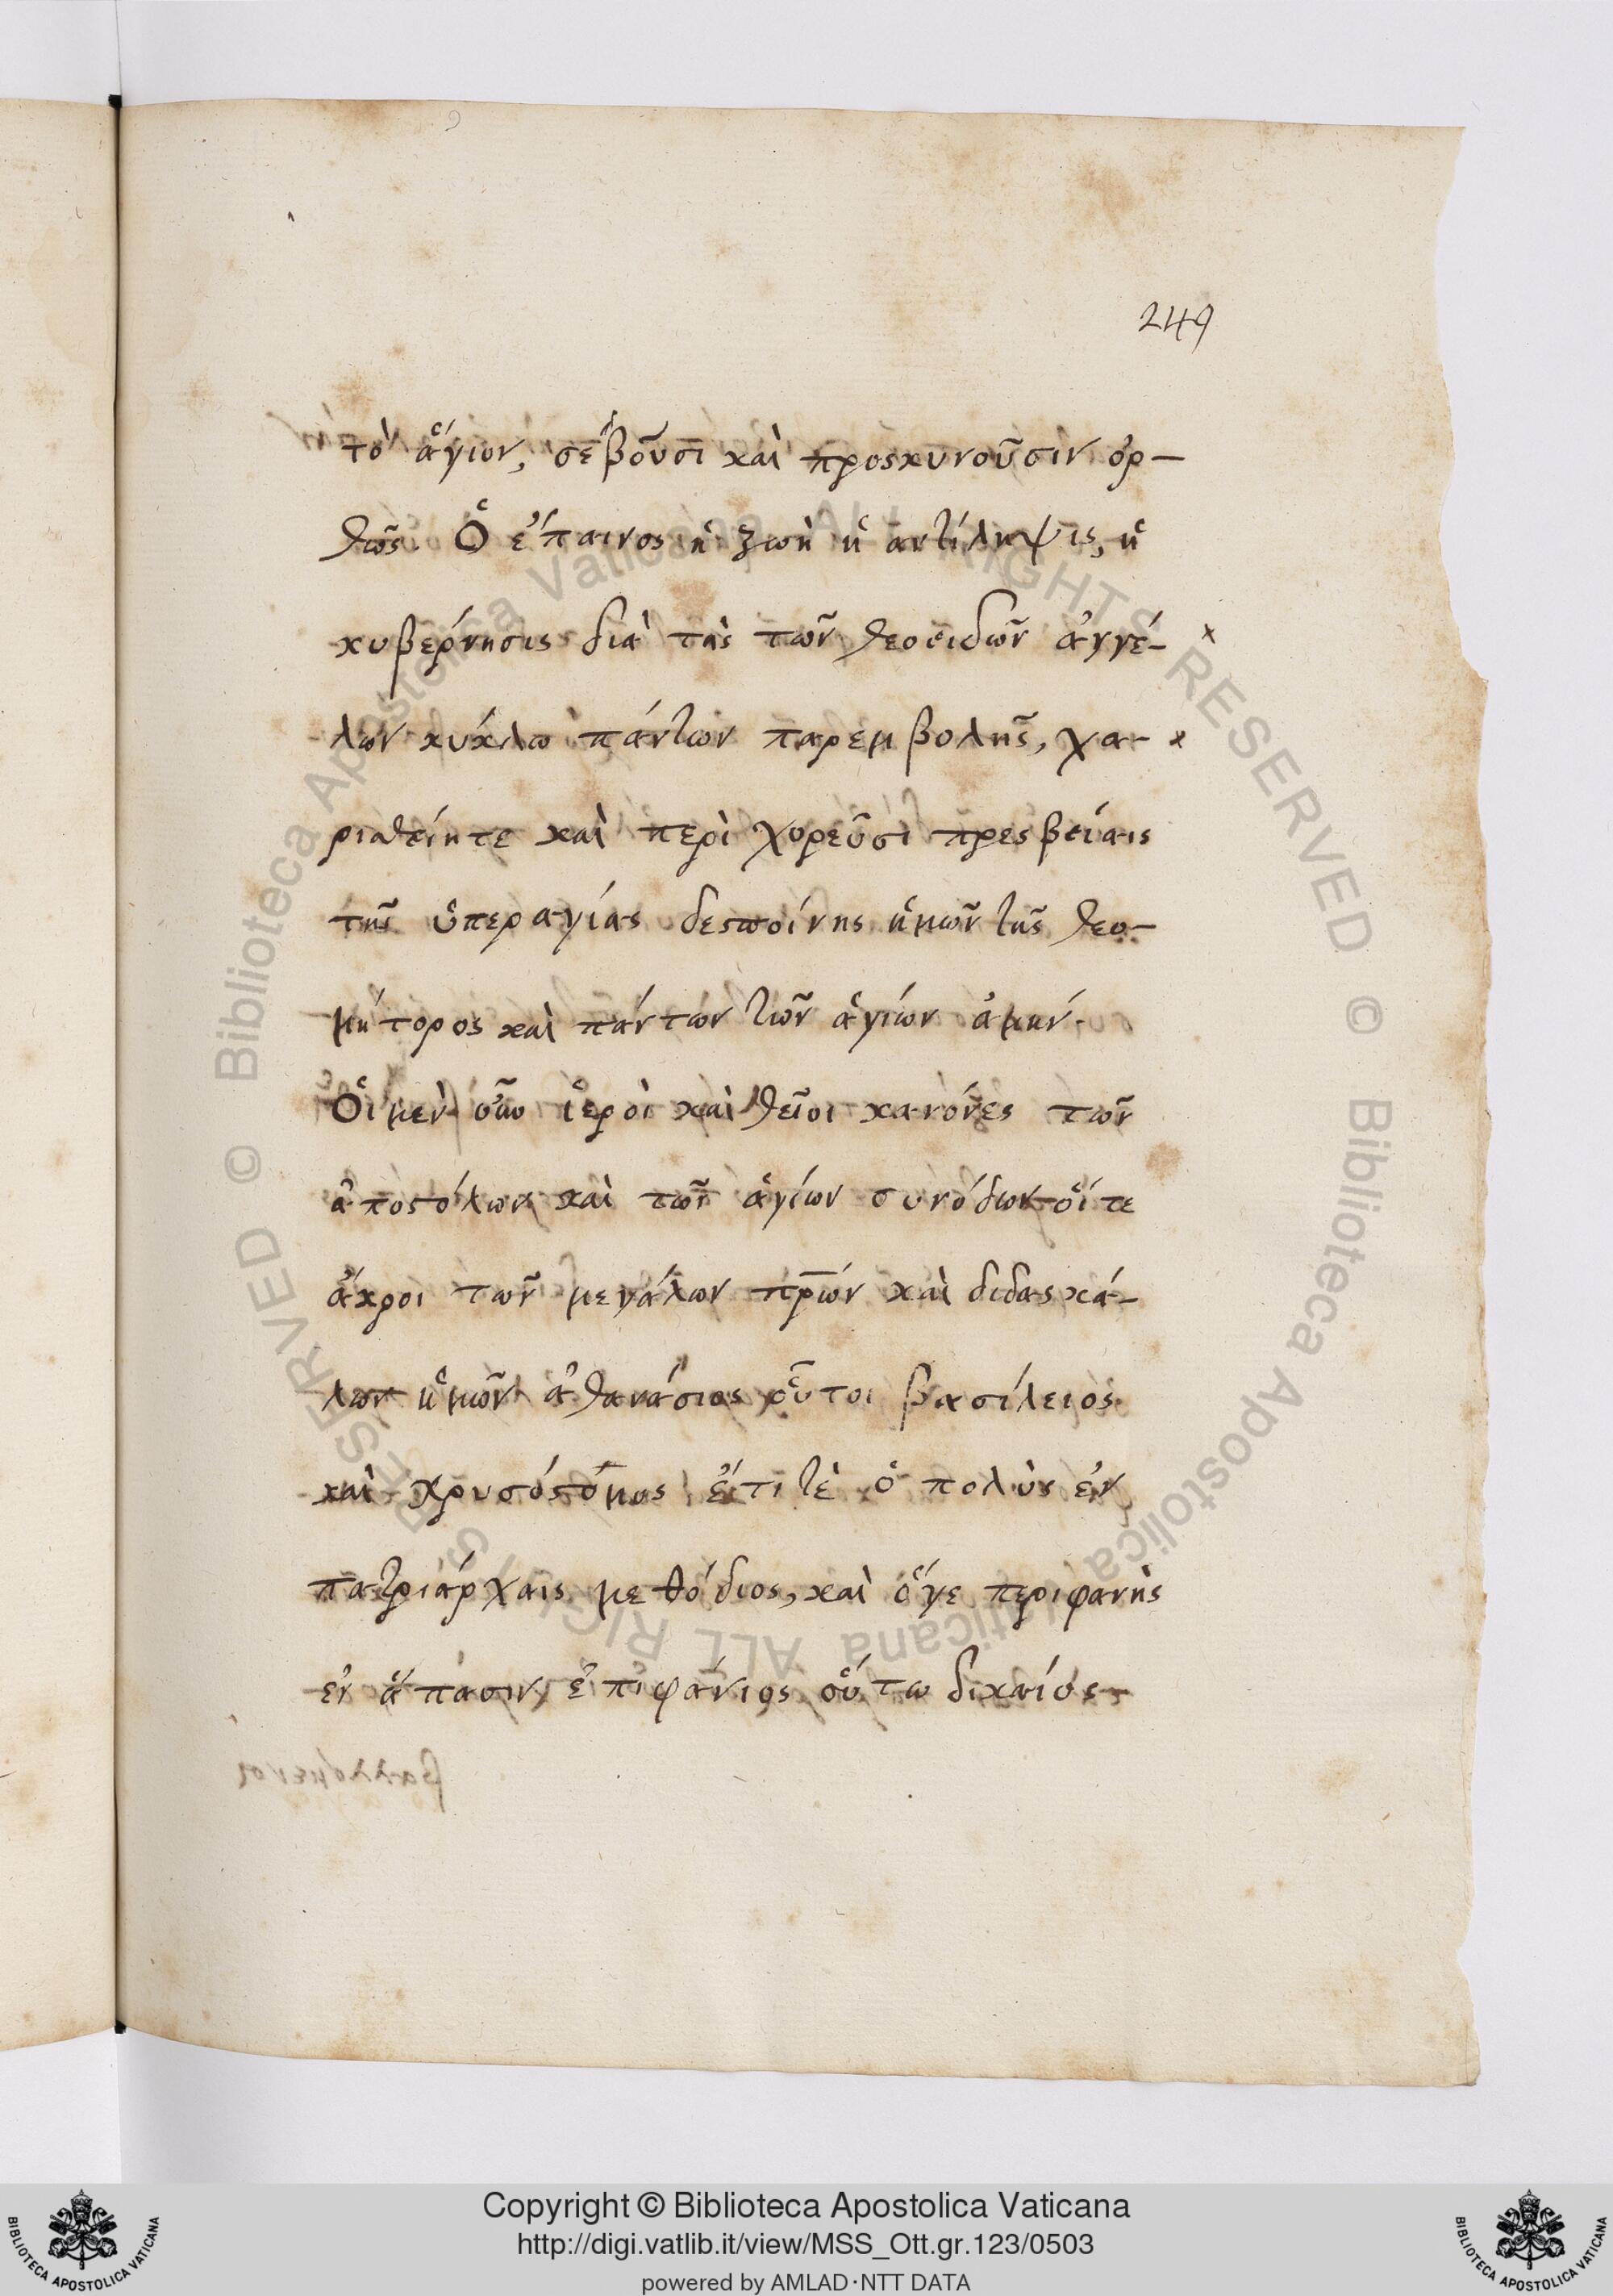 249
τὸ ἅγιον, σέβουσι καὶ προσκυνοῦσιν ὀρ-
θῶς. Ὁ ἔπαινος ἡ ζωὴ ἡ ἀντίληψις, ἡ
κυβέρνησις διὰ τὰς τῶν θεοειδῶν ἀγγέ-
λων κύκλω πάντων παρεμβολῆς, χα-
ριθείητε καὶ περὶ χορεῦσι πρεσβείαις
τῆς ὑπεραγίας δεσποίνης ἡμῶν τῆς θεο-
μήτορος καὶ πάντων τῶν ἁγίων ἀμήν.
Οἱ μὲν οὖν ἱεροὶ καὶ θεῖοι κανόνες τῶν
ἀποστόλων καὶ τῶν ἁγίων συνόδων οἵ τε
ἄκροι τῶν μεγάλων πρ̅ων καὶ διδασκά-
λων ἡμῶν ἀθανάσιος οὗτοι βασίλειος
καὶ χρυσόστομος ἔτι τὲ ὁ πολὺς ἐν
πατριάρχαις μεθόδιος, καὶ ὅγε περιφανὴς
ἐν ἅπασιν, ἐπιφάνιος οὕτω δικαίως
Copyright © Biblioteca Apostolica Vaticana
http://digi.vatlib.it/view/MSS_Ott.gr.123/0503
powered by AMLAD·NTT DATA
BIBLIOTECA APOSTOLICA VATICANA
BIBLIOTECA APOSTOLICA VATICANA
© Biblioteca Apostolica Vaticana ALL RIGHTS RESERVED © Biblioteca Apostolica Vaticana ALL RIGHTS RESERVED